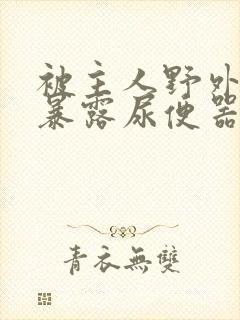 被主人野外
暴露尿便器
青衣無雙